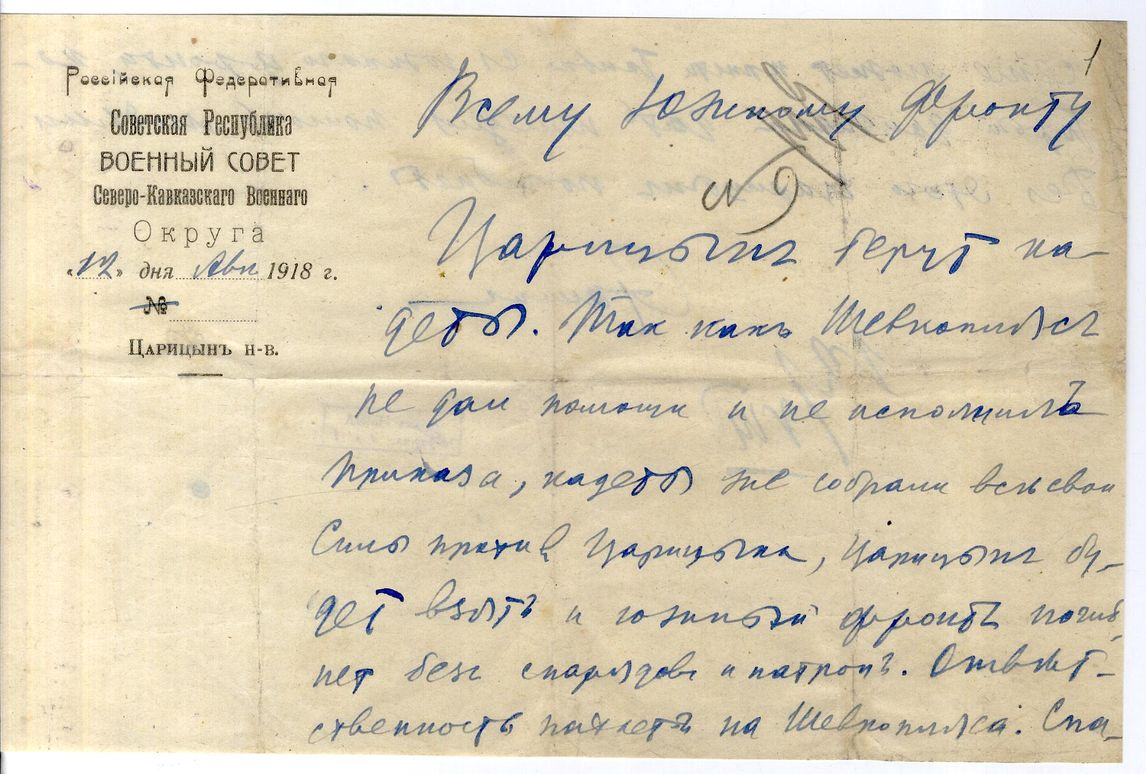 1
Россійская Федеративная
Советская Республика
ВОЕННЫЙ СОВЕТ
Северо-Кавказскаго Военнаго
Округа
„12" дня Авг 1918 г.
№
ЦАРИЦЫНЪ н-в.
Всему Южному Фронту
Царицын берут ка-
деты. Так какъ Шевкоплясъ
не дал помощи и не исполнилъ
приказа, кадеты же собрали все свои
Силы против Царицына, Царицын бу-
дет взятъ и южный фронтъ погиб
нет без снарядов и патронъ. Ответ-
ственность падетъ на Шевкопляса. Спа-